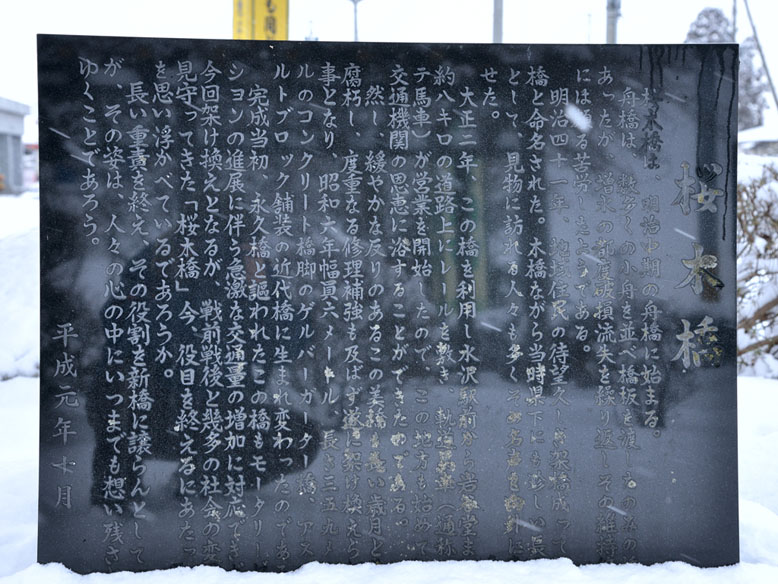 桜木橋
桜木橋は、明治中期の舟橋に始まる。
舟橋は、数多くの小舟を並べ橋板を渡したものの
あったが、増水の都度破損流失を繰り返しその維持
には頗る苦労したとである。
明治四十一年、地域住民の待望久しき架橋成って
橋と命名された。木橋ながら当時県下にも珍しい長
として、見物に訪れる人々も多く
せた。
大正三年、この橋を利用し水沢駅前から岩谷堂ま
約八キロの道路上にレールを敷き、軌道馬車(通称
テ馬車)が営業を開始したので、この地方も始めて
交通機関の恩恵に浴することができたのである。
然し、緩やかな反りのあるこの美橋も長い歳月と
腐朽し、度重なる修理補強も及ばず遂に架け換えら
事となり、昭和六年幅員六メートル、長さ三五九
ルのコンクリート橋脚のゲルバーガーター橋、アス
ルトブロック舗装の近代橋に生まれ変わったのであ
完成当初、永久橋と謳われたこの橋もモータリ
ションの進展に伴う急激な交通量の増加に対応でき
今回架け換えとなるが、戦前戦後と幾多の社会の変
見守ってきた「桜木橋」今、役目を終えるにあたっ
を思い浮かべているであろうか。
長い重責を終え、その役割を新橋に譲らんとして
が、その姿は、人々の心の中にいつまでも想い残さ
ゆくことであろう。
平成元年十月